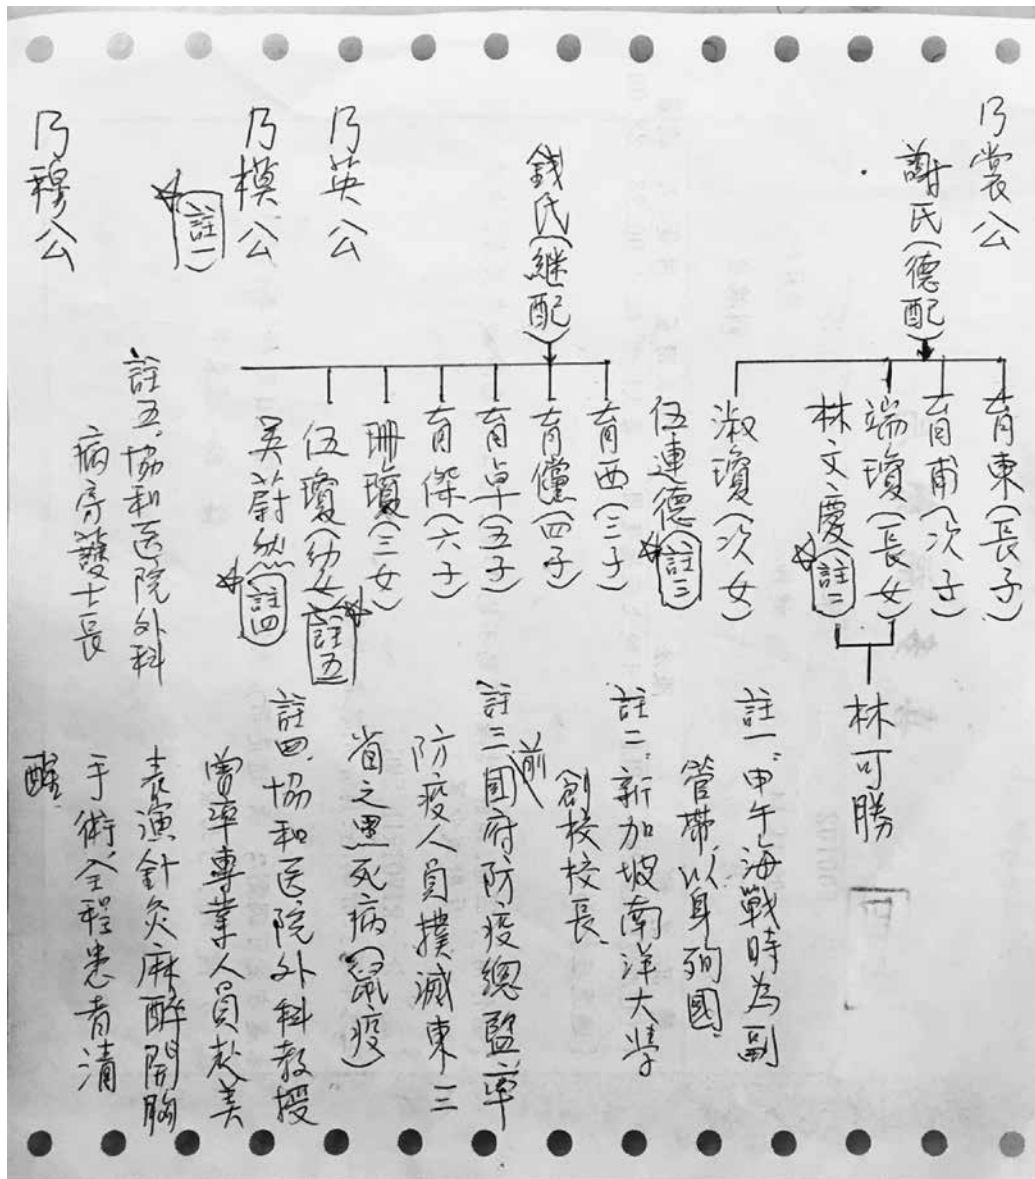 乃裳公
謝氏(德配)
育東(長子)
育甫(次子)
端瓊(長女)
林文慶(註二)
林可勝
淑瓊(次女)
伍連德(註三)
錢氏(繼配)
育西(三子)
育儻(四子)
育卓(五子)
育傑(六子)
珊瓊(三女)
伍瓊(幼女)(註五)
吳蔚然(註四)
乃英公
乃模公
(註一)
乃穆公
註一、甲午海戰時為副
管帶以身殉國
註二、新加坡南洋大學
創校校長
註三、前國府防疫總監率
防疫人員撲滅東三
省之黑死病(鼠疫)
註四、協和医院外科教授
曾率專業人員赴美
表演針灸麻醉開胸
手術,全程患者清
醒
註五、協和医院外科
病房護士長